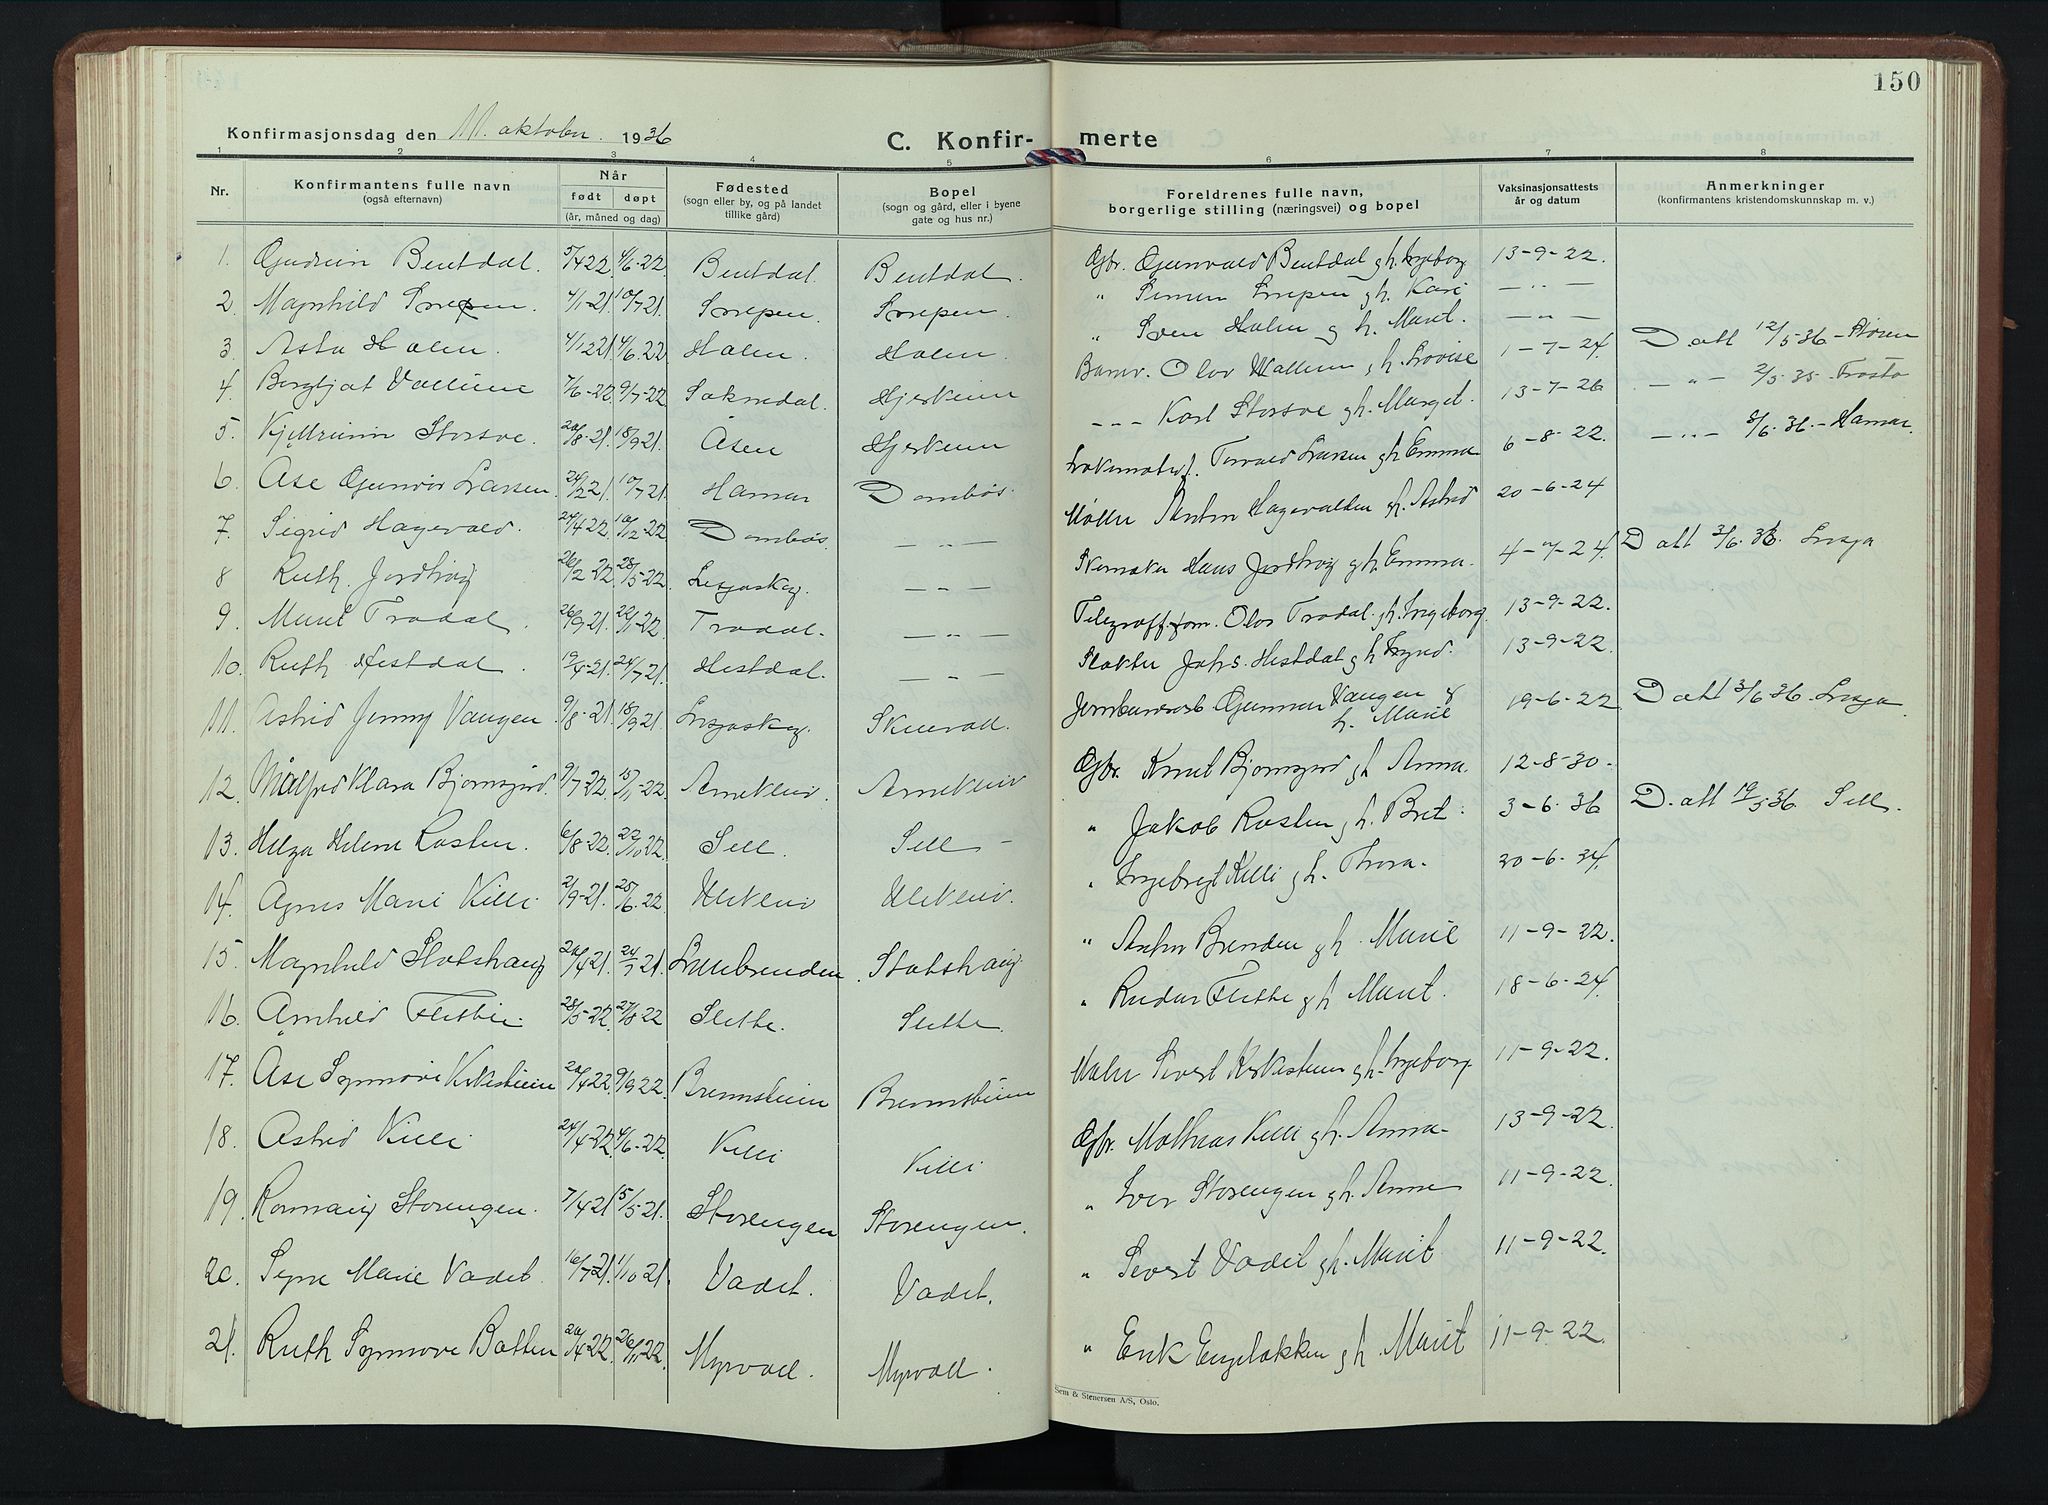 150
Konfirmasjonsdag den 11. oktober 1936
C. Konfir-merte
1 2 3 4 5 6 7 8
Nr. Konfirmantens fulle navn (også efternavn) Når født døpt (år, måned og dag) Fødested (sogn eller by, og på landet tillike gård) Bopel (sogn og gård, eller i byene gate og hus nr.) Foreldrenes fulle navn, borgerlige stilling (næringsvei) og bopel Vaksinasjonsattests år og datum Anmerkninger (konfirmantens kristendomskunnskap m. v.)
1. Gudrun Bentdal. 5/4 22 4/6-22 Bentdal. Bentdal. Gbr. Gunvald Bentdal gh. Ingeborg 13-9-22.
2. Magnhild 4/1-21 10/7 21. " Simen gh. Kari — " —
3. Asta Holen. 4/12 21. 4/6 22 Holen. Holen. " Sven Holen og h. Marit. — " —
4. Borghjot 7/6-22 9/7-22 Hjerkinn Banev. Olov gh. Lovise 1-7-24. D. att 12/5-36 - Støren
5. Storsve. 20/8-21. 18/9 21. Åsen Hjerkinn — " — Karl Storsve gh. Marget. 13-7-26 — " — 2/5-35-
6. Åse Gunvor Larsen. 24/2 21. 10/7 21. Hamar Dombås. Lokomotivf. Torvald Larsen gh. Emma 6-8-22. — " — 8/6. 36. - Hamar.
7. Sigrid Hagevold. 24/4 22. 10/12-22 Dombås. — " — Møller Anton Hagevolden gh. Astrid 20-6-24
8 Ruth Jordhøy 26/2 22. 28/5-22 Lesjaskog. — " — Skomaker Hans Jordhøy gh. Emma. 4-7-24. D att 3/6. 36. Lesja
9. Marit Trodal. 26/9 21. 22/1-22 Trodal. — " — Telegraff.form. Olov Trodal. gh. Ingeborg. 13-9-22.
10. Ruth Hestdal. 19/4-21. 24/7 21. Hestdal. — " — Slakter Johs. Hestdal gh. 13-9-22.
11. Astrid Jenny Vangen. 9/8-21. 18/9 21. Lesjaskog. Gunnar Vangen & h. Marie 19-6-22 D att 3/6 36. Lesja.
12. Målfrid Klara Bjørnsgård. 9/7-22. 15/11-22. Arnekleiv. Arnekleiv Gbr. Knut Bjørnsgård gh Anna. 12-8-30.
13. Helga Helene Rosten. 6/8-22. 22/10 22. Sell. Sell - " Jakob Rosten gh. Brit. 3-6-36 D. att 19/5 36 Sell.
14. Agnes Marie Killi. 2/9-21. 25/6. 22. Ulekleiv Ulekleiv. " Ingebrigt Killi gh. Thora. 30-6-34.
15. Magnhild Slotshaug 20/4 21. 24/7 21. Lillebrenden. Slotshaug. " Anton Brenden gh. Marie 11-9-22.
16. Arnhild 28/5-22. 27/8 22 " gh Marit. 18-6-24.
17. Åse Synnøve 20/4 22. 9/9 22. Brennstuen Brennstuen Maler Sivert gh. Ingeborg 11-9-22.
18. Astrid Killi 24/4-22. 4/6-22. Killi Killi. Gbr. Mathias Killi gh. Anna. 13-9-22.
19. Ronnaug Storengen. 7/4 21 15/5-21. Storengen Storengen. " Iver Storengen gh. Anne 11-9-22.
20. Signe Marie Vadet. 16/7 21. 1/10 21. Vadet. Vadet. " Sivert Vadet gh. Marit 11-9-22.
21. Ruth Synnøve Botten 20/4-22. 26/11 22. Myrvoll. Myrvoll. " Erik Engelokken gh. Marit 11-9-22.
Sem & Stenersen A/S, Oslo.